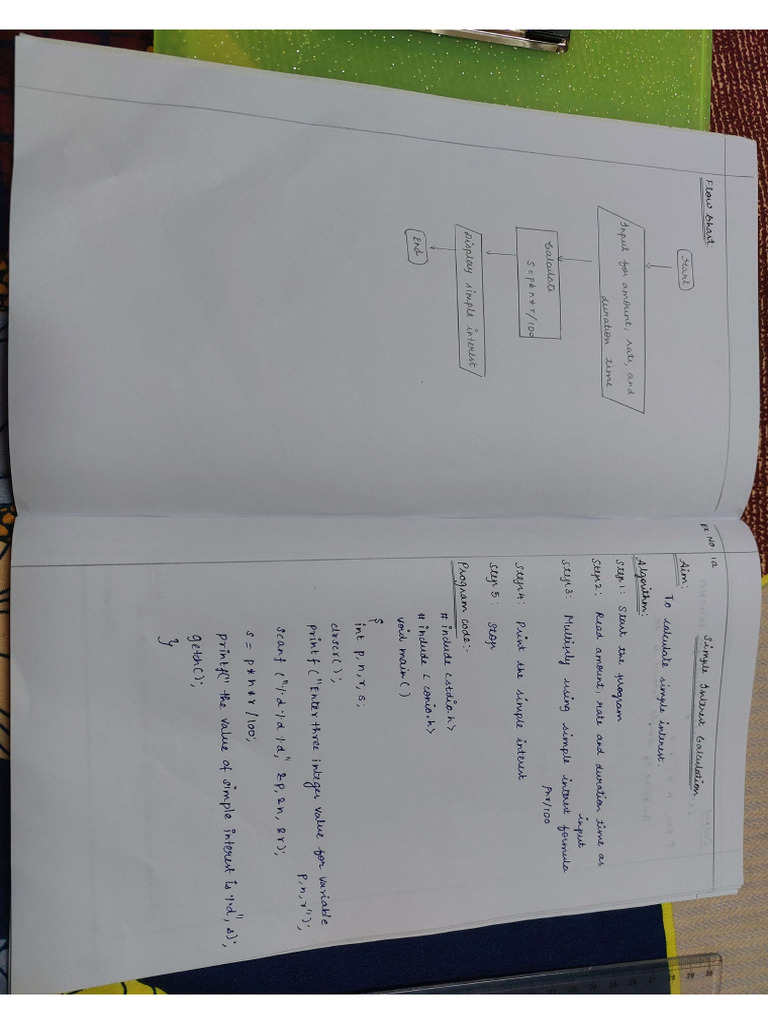 Flow Chart:
Start
Input for amount, rate, and
duration time
Calculate
S = p*n*r/100
Display simple interest
End
Ex No 1a
Simple Interest Calculation
Aim:
To calculate simple interest.
Algorithm:
Step 1: Start the program
Step 2: Read amount, rate and duration time as
input
Step 3: Multiply using simple interest formula
pnr/100
Step 4: Print the simple interest
Step 5: Stop
Program code:-
# include <stdio.h>
# include < conio.h>
void main()
{
int p,n,r,s;
clrscr();
printf ("Enter three integer value for variable
p,n,r");
scanf ("%d %d %d," &p, &n, &r);
s = p*n*r/100;
printf(" the value of simple interest is %d", s);
getch();
}
28 29 30